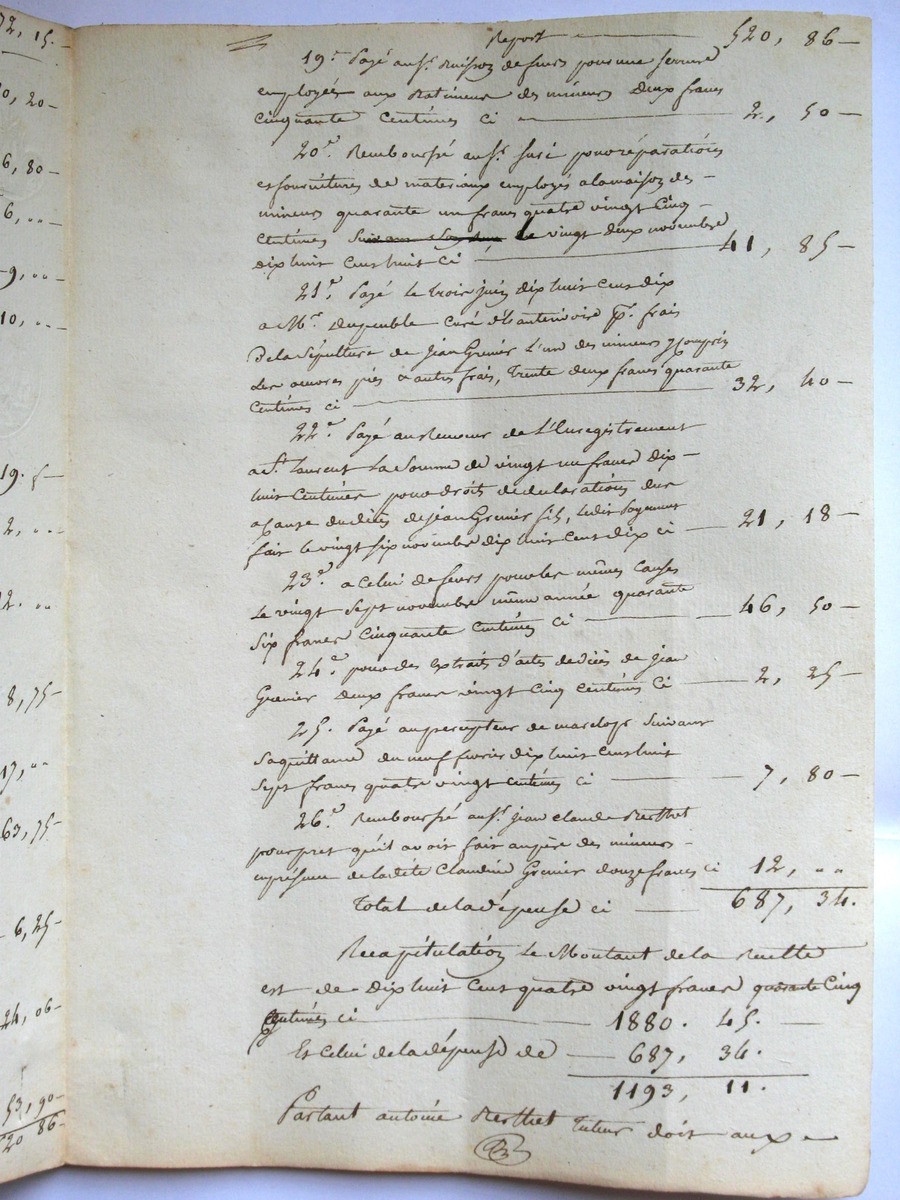 72, 15.-
0, 20-
6, 80-
6, ..-
-9, ..-
10, ..-
19. f-
2, ..-
12. ..
8, 75-
17, ..-
63, 75-
- 6, 25-
24, 06-
53, 90-
20 86-
Report — 520, 86-
19e. Payé au Sr. Buisson de feurs pour une serrure
employée aux Batimens des mineurs Deux francs
cinquante Centimes ci — 2, 50-
20e. Remboursé au Sr. pour réparations
et fournitures de materiaux employés a la maison des -
mineurs quarante un francs quatre vingt Cinq -
Centimes le vingt deux novembre
Dix huit Cent huit ci — 41, 85-
21e. Payé le trois juin dix huit cent dix
a Mr. curé pr. frais
De la Sépulture de Jean Grenier L'un des mineurs y compris
Les oeuvres pies & autres frais, Trente deux francs quarante
Centimes ci — 32, 40-
22e. Payé au Receveur de L'Enregistrement
a St. Laurent La Somme de vingt un francs dix -
huit Centimes pour droits de declarations due
a Cause du décès de Jean Grenier fils, ledit Payement
fait le vingt six novembre dix huit cent dix ci — 21, 18-
23e. a Celui de feurs pour les mêmes Causes
Le vingt Sept novembre même année quarante
Six francs Cinquante Centimes ci — 46, 50-
24e. pour des Extraits d'actes de décès de Jean
Grenier deux francs vingt Cinq centimes Ci — 2, 25-
25. Payé au percepteur de marclopt Suivant
Sa quittance du neuf fevrier dix huit Cent huit
Sept francs quatre vingt centimes ci — 7, 80-
26e. Remboursé au Sr. Jean Claude Berthet
pour pret qu'il avoit fait au père des mineurs -
en présence de la dite Claudine Grenier douze francs ci 12, ..
Total de la dépense ci — 687, 34.
Recapitulation Le Montant de la Recette
est de Dix huit Cent quatre vingt francs quarante Cinq
Centimes ci — 1880. 45. —
Et Celui de la dépense de — 687, 34.
1193, 11.
Partant antoine Berthet Tuteur doit aux